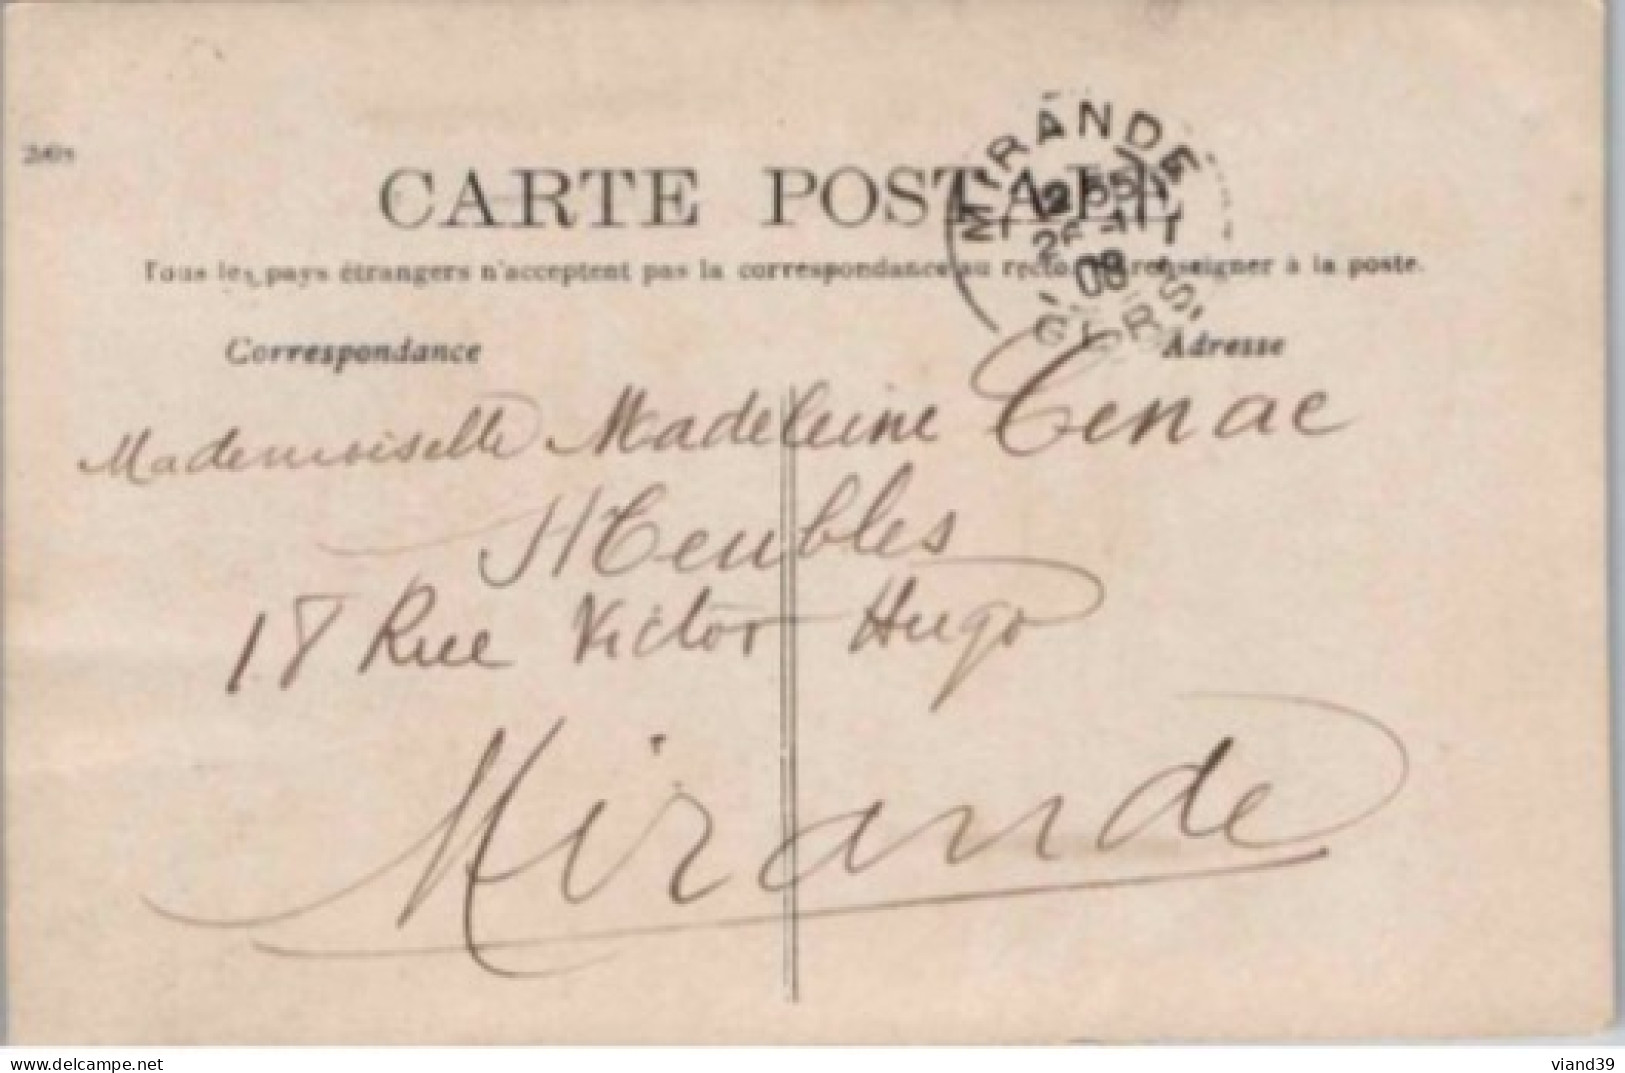 CARTE POSTALE
MIRANDE
08
GERS
Tous les pays étrangers n'acceptent pas la correspondance au recto renseigner à la poste.
Correspondance
Adresse
Mademoiselle Madeleine Cenac
Meubles
18 Rue Victor Hugo
Mirande
www.delcampe.net
viand39